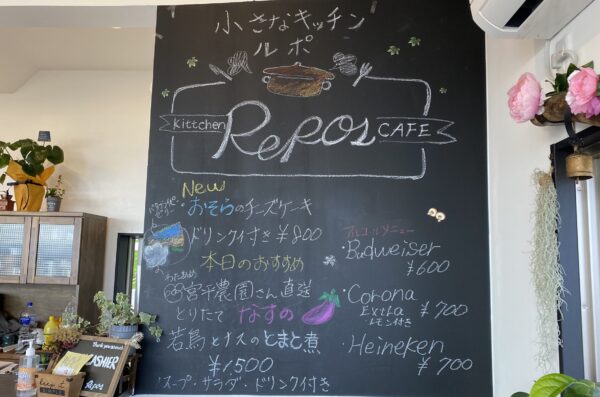 小さなキッチン
ルポ
Kittchen Repos CAFE
New
おそらのチーズケーキ
ドリンク付き ¥800
わたあめ
本日のおすすめ
宮平農園さん直送
とりたて なすの
若鳥とナスのとまと煮
¥1,500
スープ・サラダ・ドリンク付き
アルコールメニュー
・Budweiser
¥600
・Corona
Extra
レモン付き
¥700
・Heineken
¥700
Thank you so much!
CASHIER
Repos